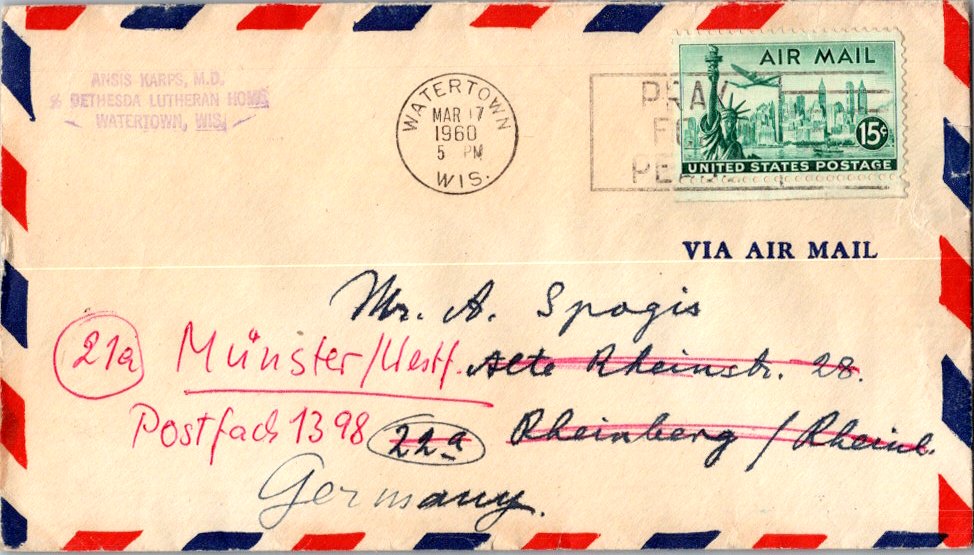 ANSIS KARPS, M.D.
% BETHESDA LUTHERAN HOME
WATERTOWN, WIS.
WATERTOWN
MAR 17
1960
5 PM
WIS.
PRAY
FOR
PEACE
AIR MAIL
15¢
UNITED STATES POSTAGE
VIA AIR MAIL
Mr. A. Spogis
21a Münster/Westf. Alte Rheinstr. 28.
Postfach 1398 22a Rheinberg / Rheinl.
Germany.